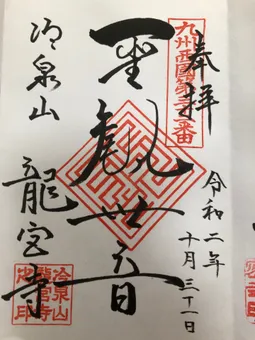 奉拝
九州西國第三十二番
令和二年
十月三十一日
聖觀世音
冷泉山
龍宮寺
冷泉山
龍宮寺
之印